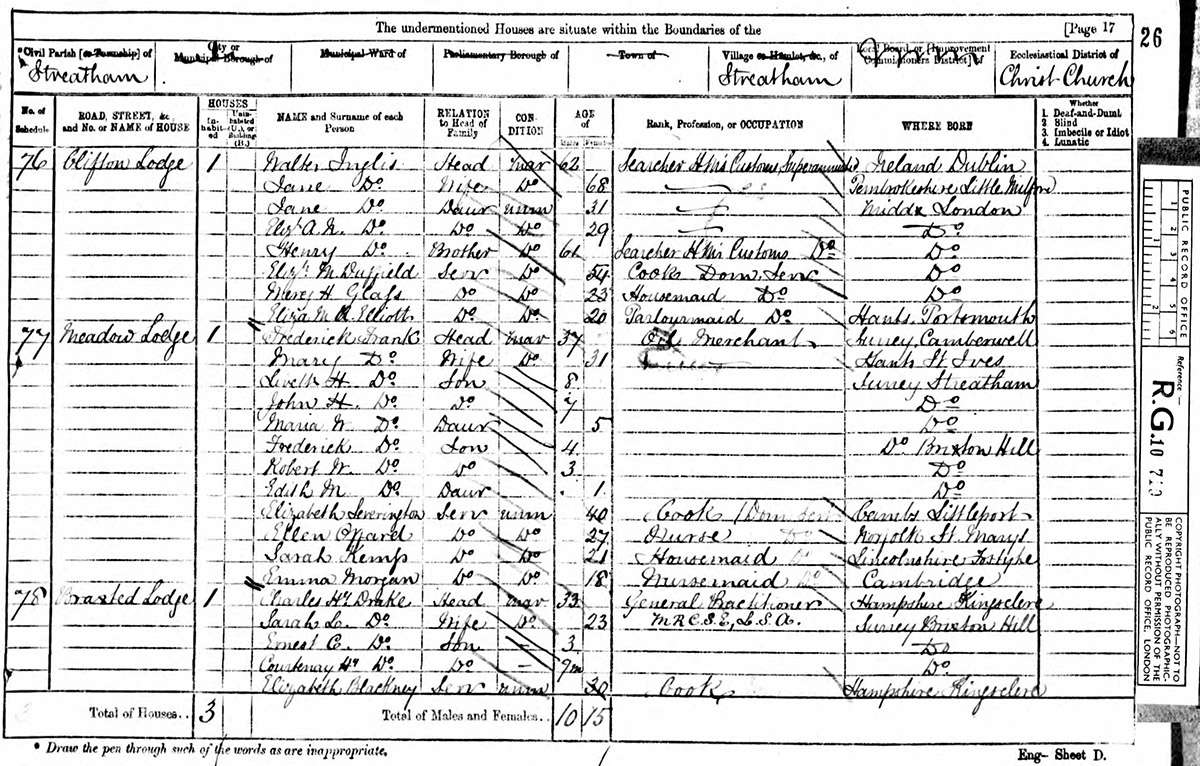 The undermentioned Houses are situate within the Boundaries of the [Page 17 26
Civil Parish [or Township] of City or Municipal Borough of Municipal Ward of Parliamentary Borough of Town of Village or Hamlet, &c., of Local Board, or [Improvement Commissioners District] of Ecclesiastical District of
Streatham Streatham Christ Church
No. of Schedule ROAD, STREET, &c., and No. or NAME of HOUSE HOUSES In-habited Uninhabited (U.), or Building (B.) NAME and Surname of each Person RELATION to Head of Family CONDITION AGE of Males Females Rank, Profession, or OCCUPATION WHERE BORN Whether 1. Deaf-and-Dumb 2. Blind 3. Imbecile or Idiot 4. Lunatic
76 Clifton Lodge 1 Walter Inglis Head Mar 62 Searcher H Ms Customs, Superannuated Ireland Dublin
Jane Do Wife Do 68 Pembrokeshire Little Milford
Jane Do Daur unm 31 Middx London
Do Do Do 29 Do
Henry Do Brother Do 61 Searcher H Ms Customs Do Do
M Duffield Serv Do 54 Cook Dom. Serv Do
Mercy H Glass Do Do 23 Housemaid Do Do
Eliza M Elliott Do Do 20 Parlourmaid Do Hants. Portsmouth
77 Meadow Lodge 1 Frederick Frank Head Mar 37 Oil Merchant Surrey, Camberwell
Mary Do Wife Do 31 Hants St Ives
H. Do Son 8 Surrey Streatham
John H. Do Do 7 Do
Maria W. Do Daur 5 Do
Frederick Do Son 4 Do Brixton Hill
Robert W. Do Do 3 Do
Edith M Do Daur 1 Do
Elizabeth Leverington Serv unm 40 Cook (Dom Serv Cambs Littleport
Ellen Do Do 27 Nurse Do Norfolk St. Marys
Sarah Kemp Do Do 21 Housemaid Do Lincolnshire
Emma Morgan Do Do 18 Nursemaid Do Cambridge
78 Braxted Lodge 1 Charles Hy Drake Head Mar 33 General Practitioner Hampshire Kingsclere
Sarah L. Do Wife Do 23 M R C S. E, L. S. A. Surrey Brixton Hill
Ernest C. Do Son – 3 Do
Courtenay Hy Do Do – 9m Do
Elizabeth Blackney Serv unm 30 Cook Hampshire Kingsclere
Total of Houses.. 3 Total of Males and Females.. 10 15
* Draw the pen through such of the words as are inappropriate.
Eng– Sheet D.
PUBLIC RECORD OFFICE
Reference:–
R.G. 10 713
COPYRIGHT PHOTOGRAPH—NOT TO BE REPRODUCED PHOTOGRAPHICALLY WITHOUT PERMISSION OF THE PUBLIC RECORD OFFICE, LONDON